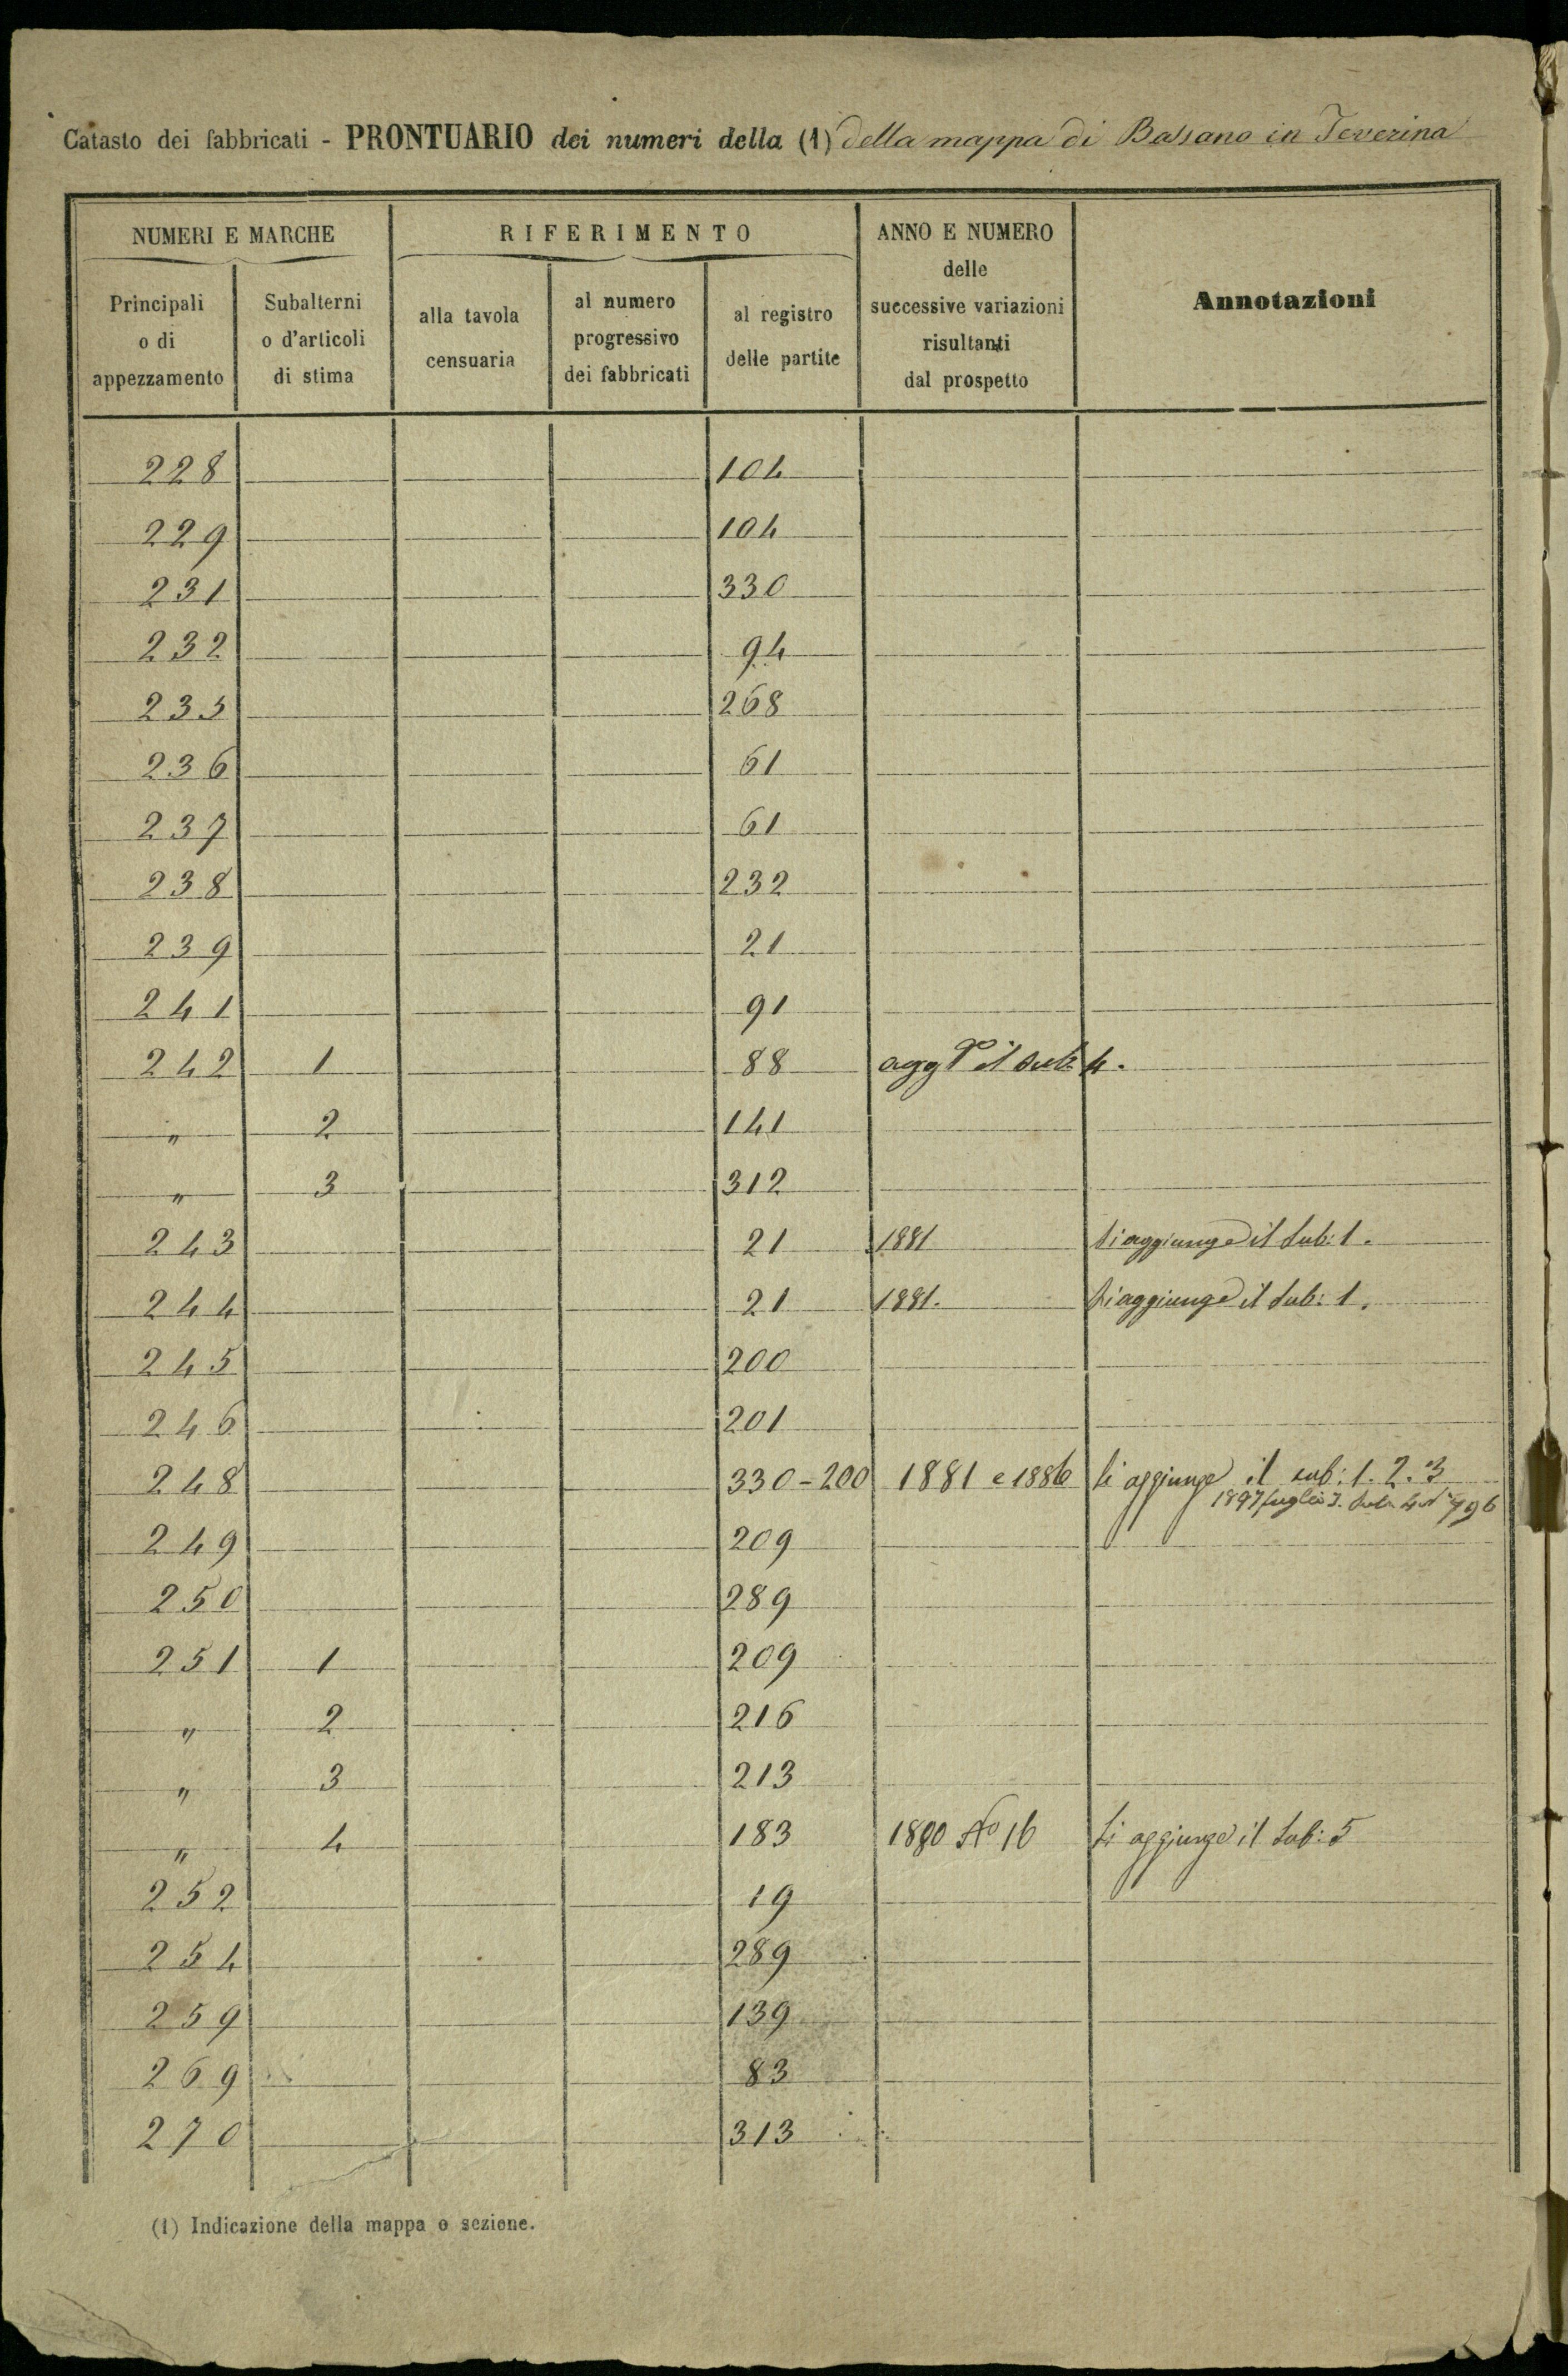 Catasto dei fabbricati - PRONTUARIO dei numeri della (1) della mappa di Bassano in Teverina
NUMERI E MARCHE
RIFERIMENTO
ANNO E NUMERO
delle
successive variazioni
risultanti
dal prospetto
Annotazioni
Principali
o di
appezzamento
Subalterni
o d'articoli
di stima
alla tavola
censuaria
al numero
progressivo
dei fabbricati
al registro
delle partite
228 104
229 104
231 330
232 94
235 268
236 61
237 61
238 232
239 21
241 91
242 1 88 aggte il sub: 4.
" 2 141
" 3 312
243 21 1881 Si aggiunge il Sub: 1.
244 21 1881. Si aggiunge il Sub: 1.
245 200
246 201
248 330-200 1881 e 1886 Si aggiunge il sub: 1. 2. 3
1897 foglio 7. Sub. 4 796
249 209
250 289
251 1 209
" 2 216
" 3 213
" 4 183 1890 No 16 Si aggiunge il Sub: 5
252 19
254 289
259 139
269 83
270 313
(1) Indicazione della mappa o sezione.